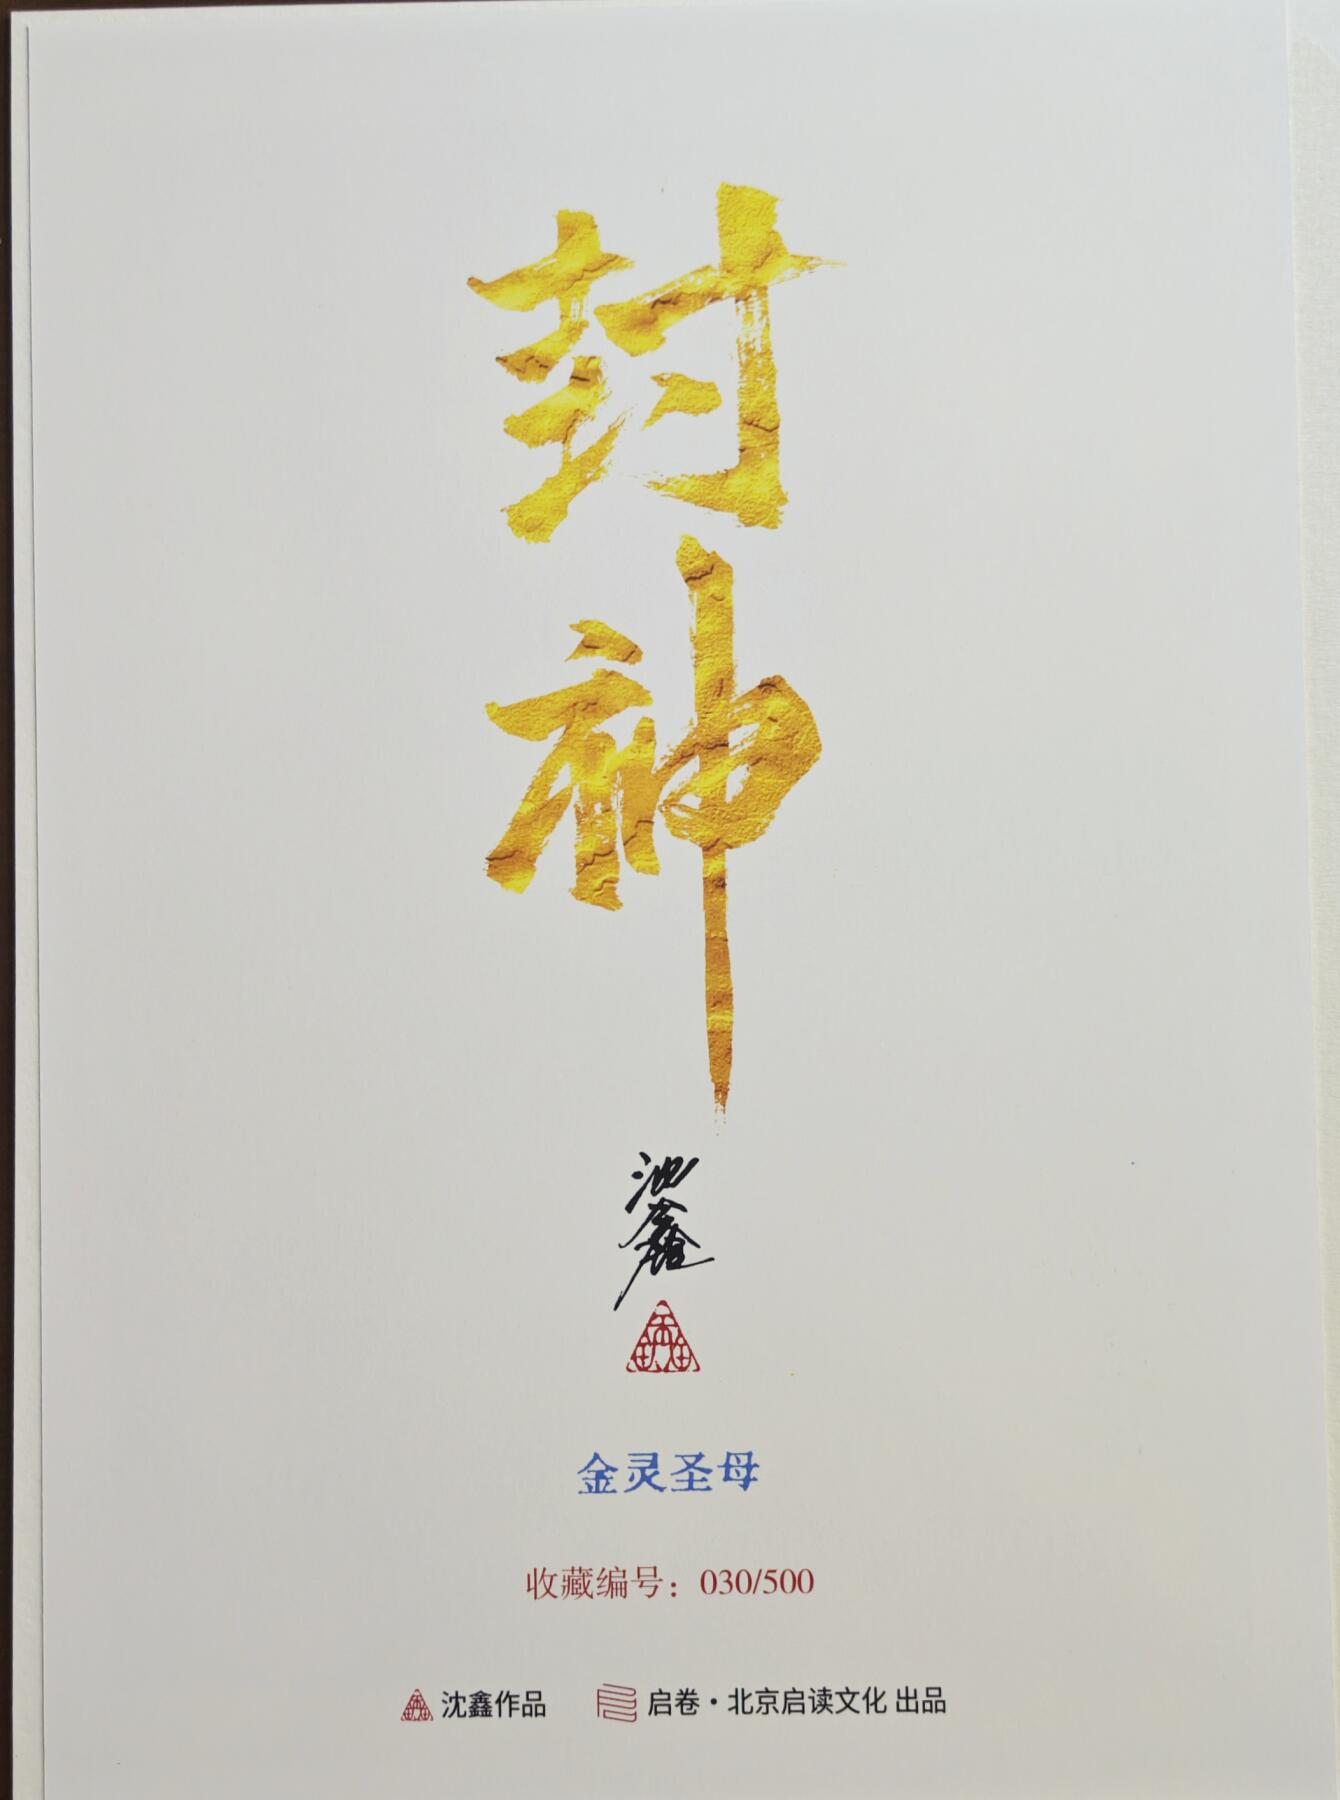 封神
沈鑫
金灵圣母
收藏编号：030/500
沈鑫作品 启卷·北京启读文化 出品